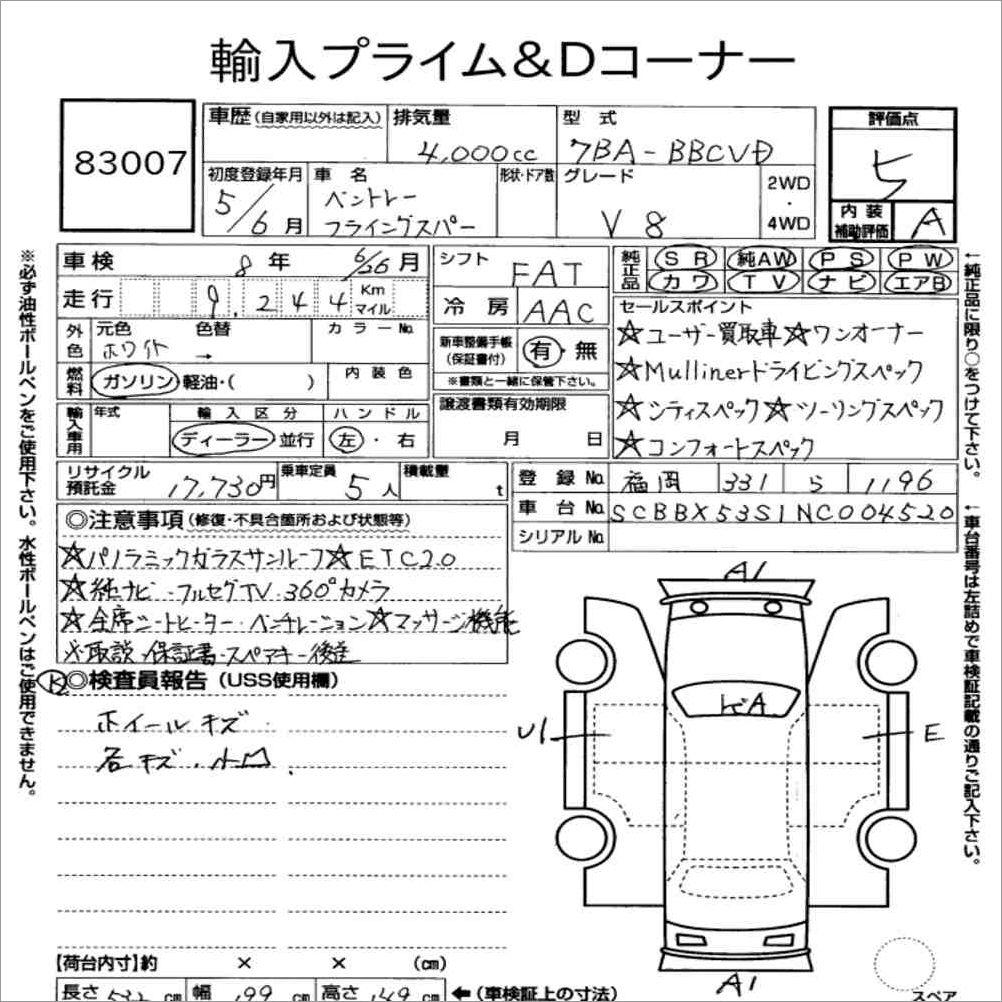 輸入プライム&Dコーナー
83007
車歴 (自家用以外は記入) 排気量 型式 評価点
4,000cc 7BA-BBCVD 5
初度登録年月 車名 形状・ドア数 グレード 2WD・4WD
5/6月 ベントレー フライングスパー V8
内装補助評価 A
車検 8年 6/26月
走行 9,244 Km マイル
外色 元色 色替 カラーNo.
ホワイト →
燃料 ガソリン 軽油・( ) 内装色
輸入車用 年式 輸入区分 ハンドル
ディーラー 並行 左・右
シフト FAT
冷房 AAC
新車整備手帳(保証書付) 有・無
※書類と一緒に保管下さい。
譲渡書類有効期限
月 日
純正品 SR 純AW PS PW
カワ TV ナビ エアB
セールスポイント
☆ユーザー買取車☆ワンオーナー
☆Mullinerドライビングスペック
☆シティスペック☆ツーリングスペック
☆コンフォートスペック
リサイクル預託金 17,730円 乗車定員 5人 積載量 t
登録No. 福岡 331 ら 1196
車台No. SCBBX53S1NC004520
シリアルNo.
◎注意事項(修復・不具合箇所および状態等)
☆パノラミックガラスサンルーフ☆ETC2.0
☆純ナビ・フルセグTV・360°カメラ
☆全席シートヒーター・ベンチレーション☆マッサージ機能
※取説・保証書・スペアキー後送
◎検査員報告(USS使用欄)
ホイールキズ
各キズ・小凹
A1
ドA
U1
E
A1
スペア
【荷台内寸】約 × × (cm)
長さ 532 cm 幅 199 cm 高さ 149 cm ←(車検証上の寸法)
※必ず油性ボールペンをご使用下さい。水性ボールペンはご使用できません。
←純正品に限り○をつけて下さい。
←車台番号は左詰めで車検証記載の通りご記入下さい。